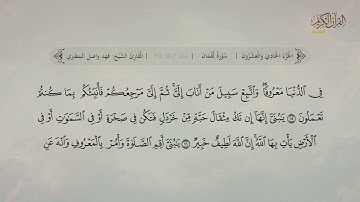 القرآن الكريم
الجزء الحادي والعشرون | سورة لقمان | القارئ الشيخ: فهد واصل المطيري
فِي الدُّنْيَا مَعْرُوفًا وَاتَّبِعْ سَبِيلَ مَنْ أَنَابَ إِلَيَّ ثُمَّ إِلَيَّ مَرْجِعُكُمْ فَأُنَبِّئُكُم بِمَا كُنتُمْ
تَعْمَلُونَ ۝ يَٰبُنَيَّ إِنَّهَا إِن تَكُ مِثْقَالَ حَبَّةٍ مِّنْ خَرْدَلٍ فَتَكُن فِي صَخْرَةٍ أَوْ فِي السَّمَٰوَٰتِ أَوْ فِي
الْأَرْضِ يَأْتِ بِهَا اللَّهُ إِنَّ اللَّهَ لَطِيفٌ خَبِيرٌ ۝ يَٰبُنَيَّ أَقِمِ الصَّلَوٰةَ وَأْمُرْ بِالْمَعْرُوفِ وَانْهَ عَنِ